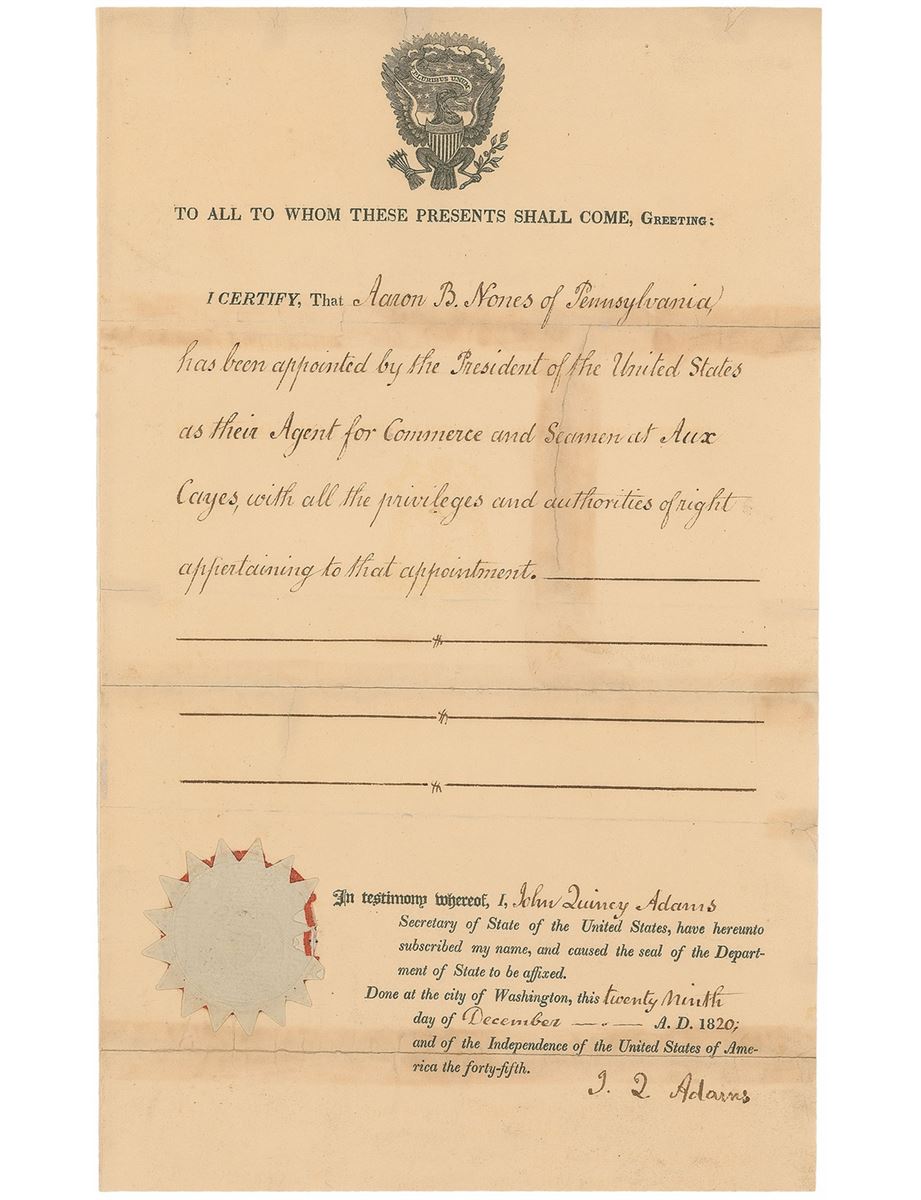 E PLURIBUS UNUM
TO ALL TO WHOM THESE PRESENTS SHALL COME, GREETING:
I CERTIFY, That Aaron B. Nones of Pennsylvania,
has been appointed by the President of the United States
as their Agent for Commerce and Seamen at Aux
Cayes, with all the privileges and authorities of right
appertaining to that appointment.
In testimony whereof, I, John Quincy Adams
Secretary of State of the United States, have hereunto
subscribed my name, and caused the seal of the Depart-
ment of State to be affixed.
Done at the city of Washington, this twenty ninth
day of December A. D. 1820;
and of the Independence of the United States of Ame-
rica the forty-fifth.
J. Q Adams